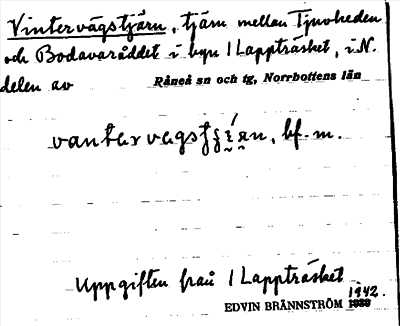 Vintervägstjärn, tjärn mellan Tjuvheden
och Bodavaråddet i byn 1 Lappträsket, i N.
delen av Råneå sn och tg, Norrbottens län
bf. m.
Uppgiften från 1 Lappträsket
1942.
EDVIN BRÄNNSTRÖM 1939